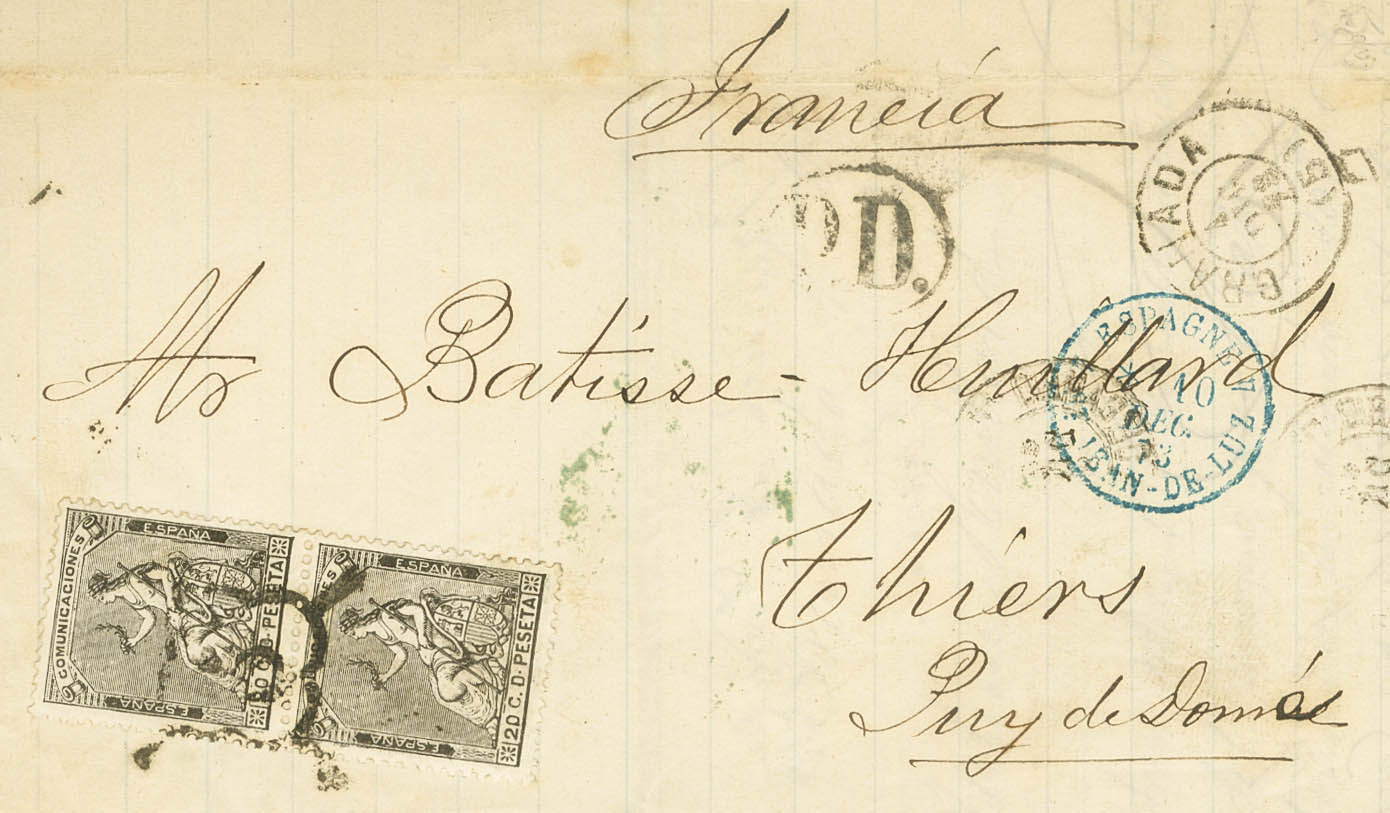 Francia
P.D.
GRANADA
Mr Batisse - Huillard
ESPAGNE
10
DEC.
73
JEAN-DE-LUZ
Thiers
Puy de Domês
ESPAÑA
COMUNICACIONES
20 C. D. PESETA
ESPAÑA
ESPAÑA
20 C. D. PESETA
ESPAÑA